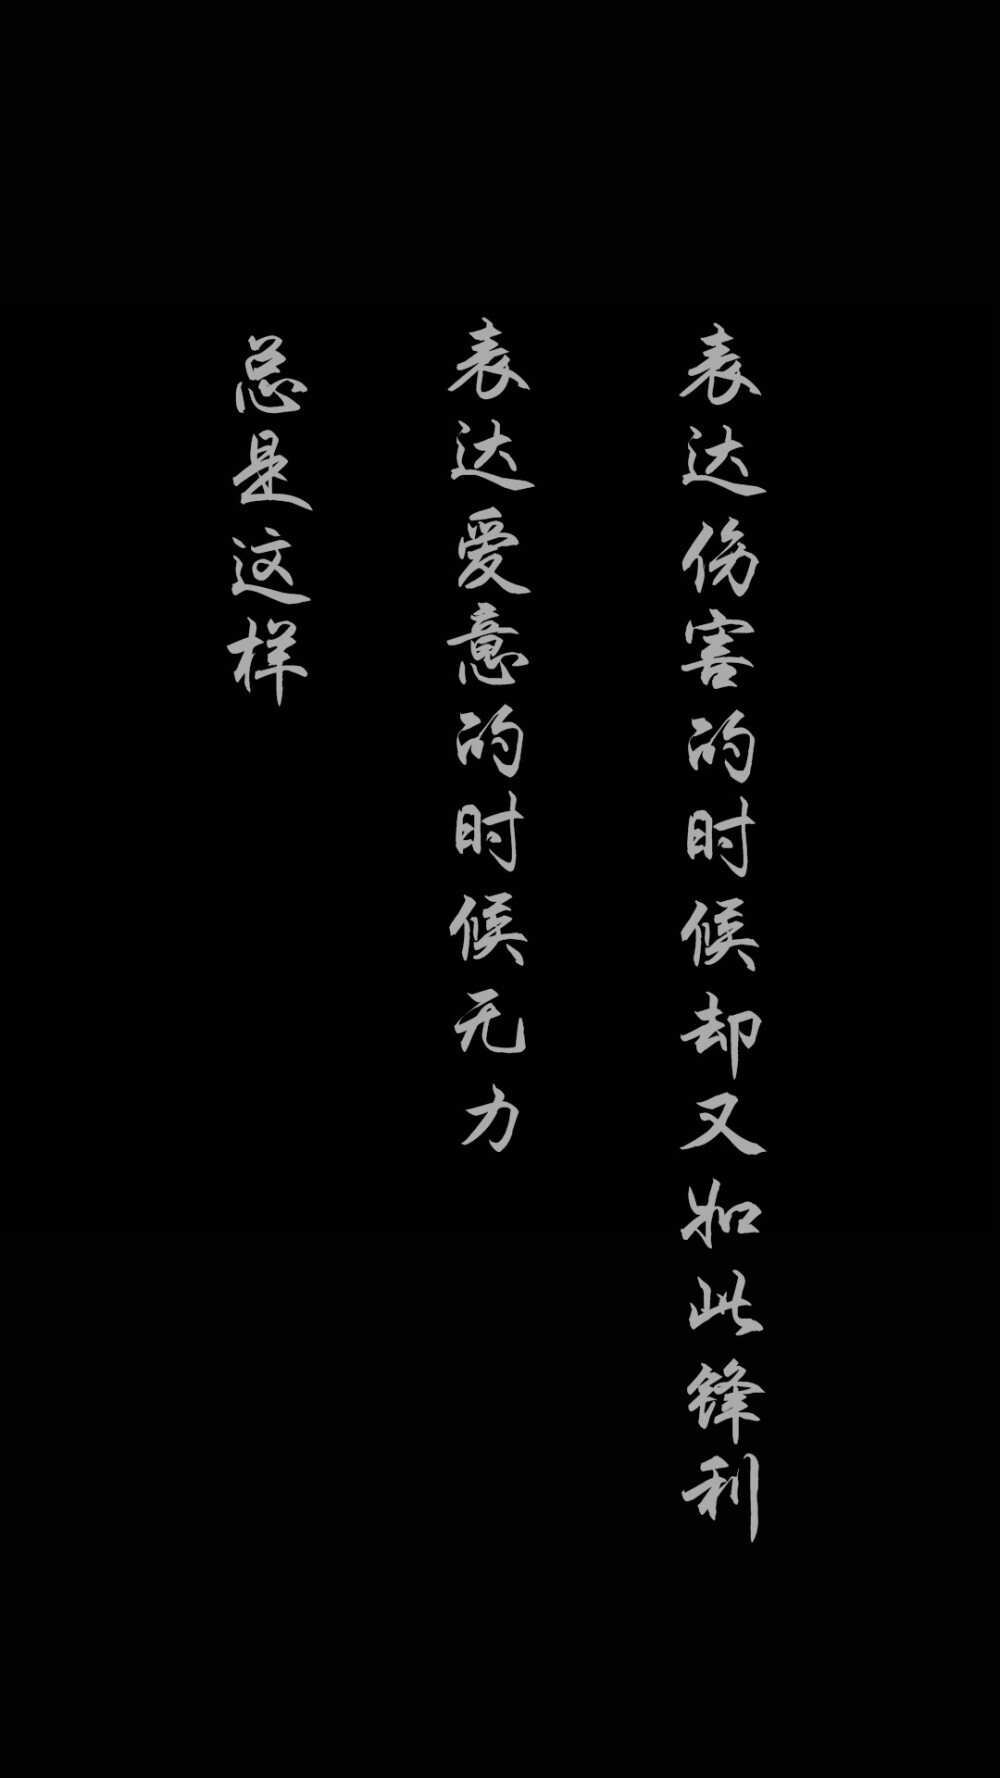 总是这样
表达爱意的时候无力
表达伤害的时候却又如此锋利